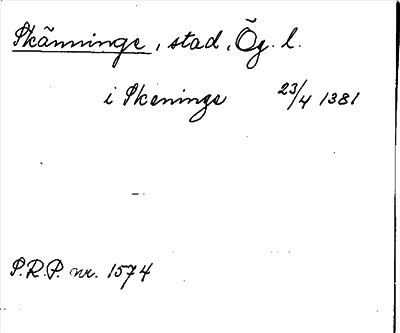 Skänninge, stad, Ög. l.
i Skeninge 23/4 1381
P.R.P. nr. 1574